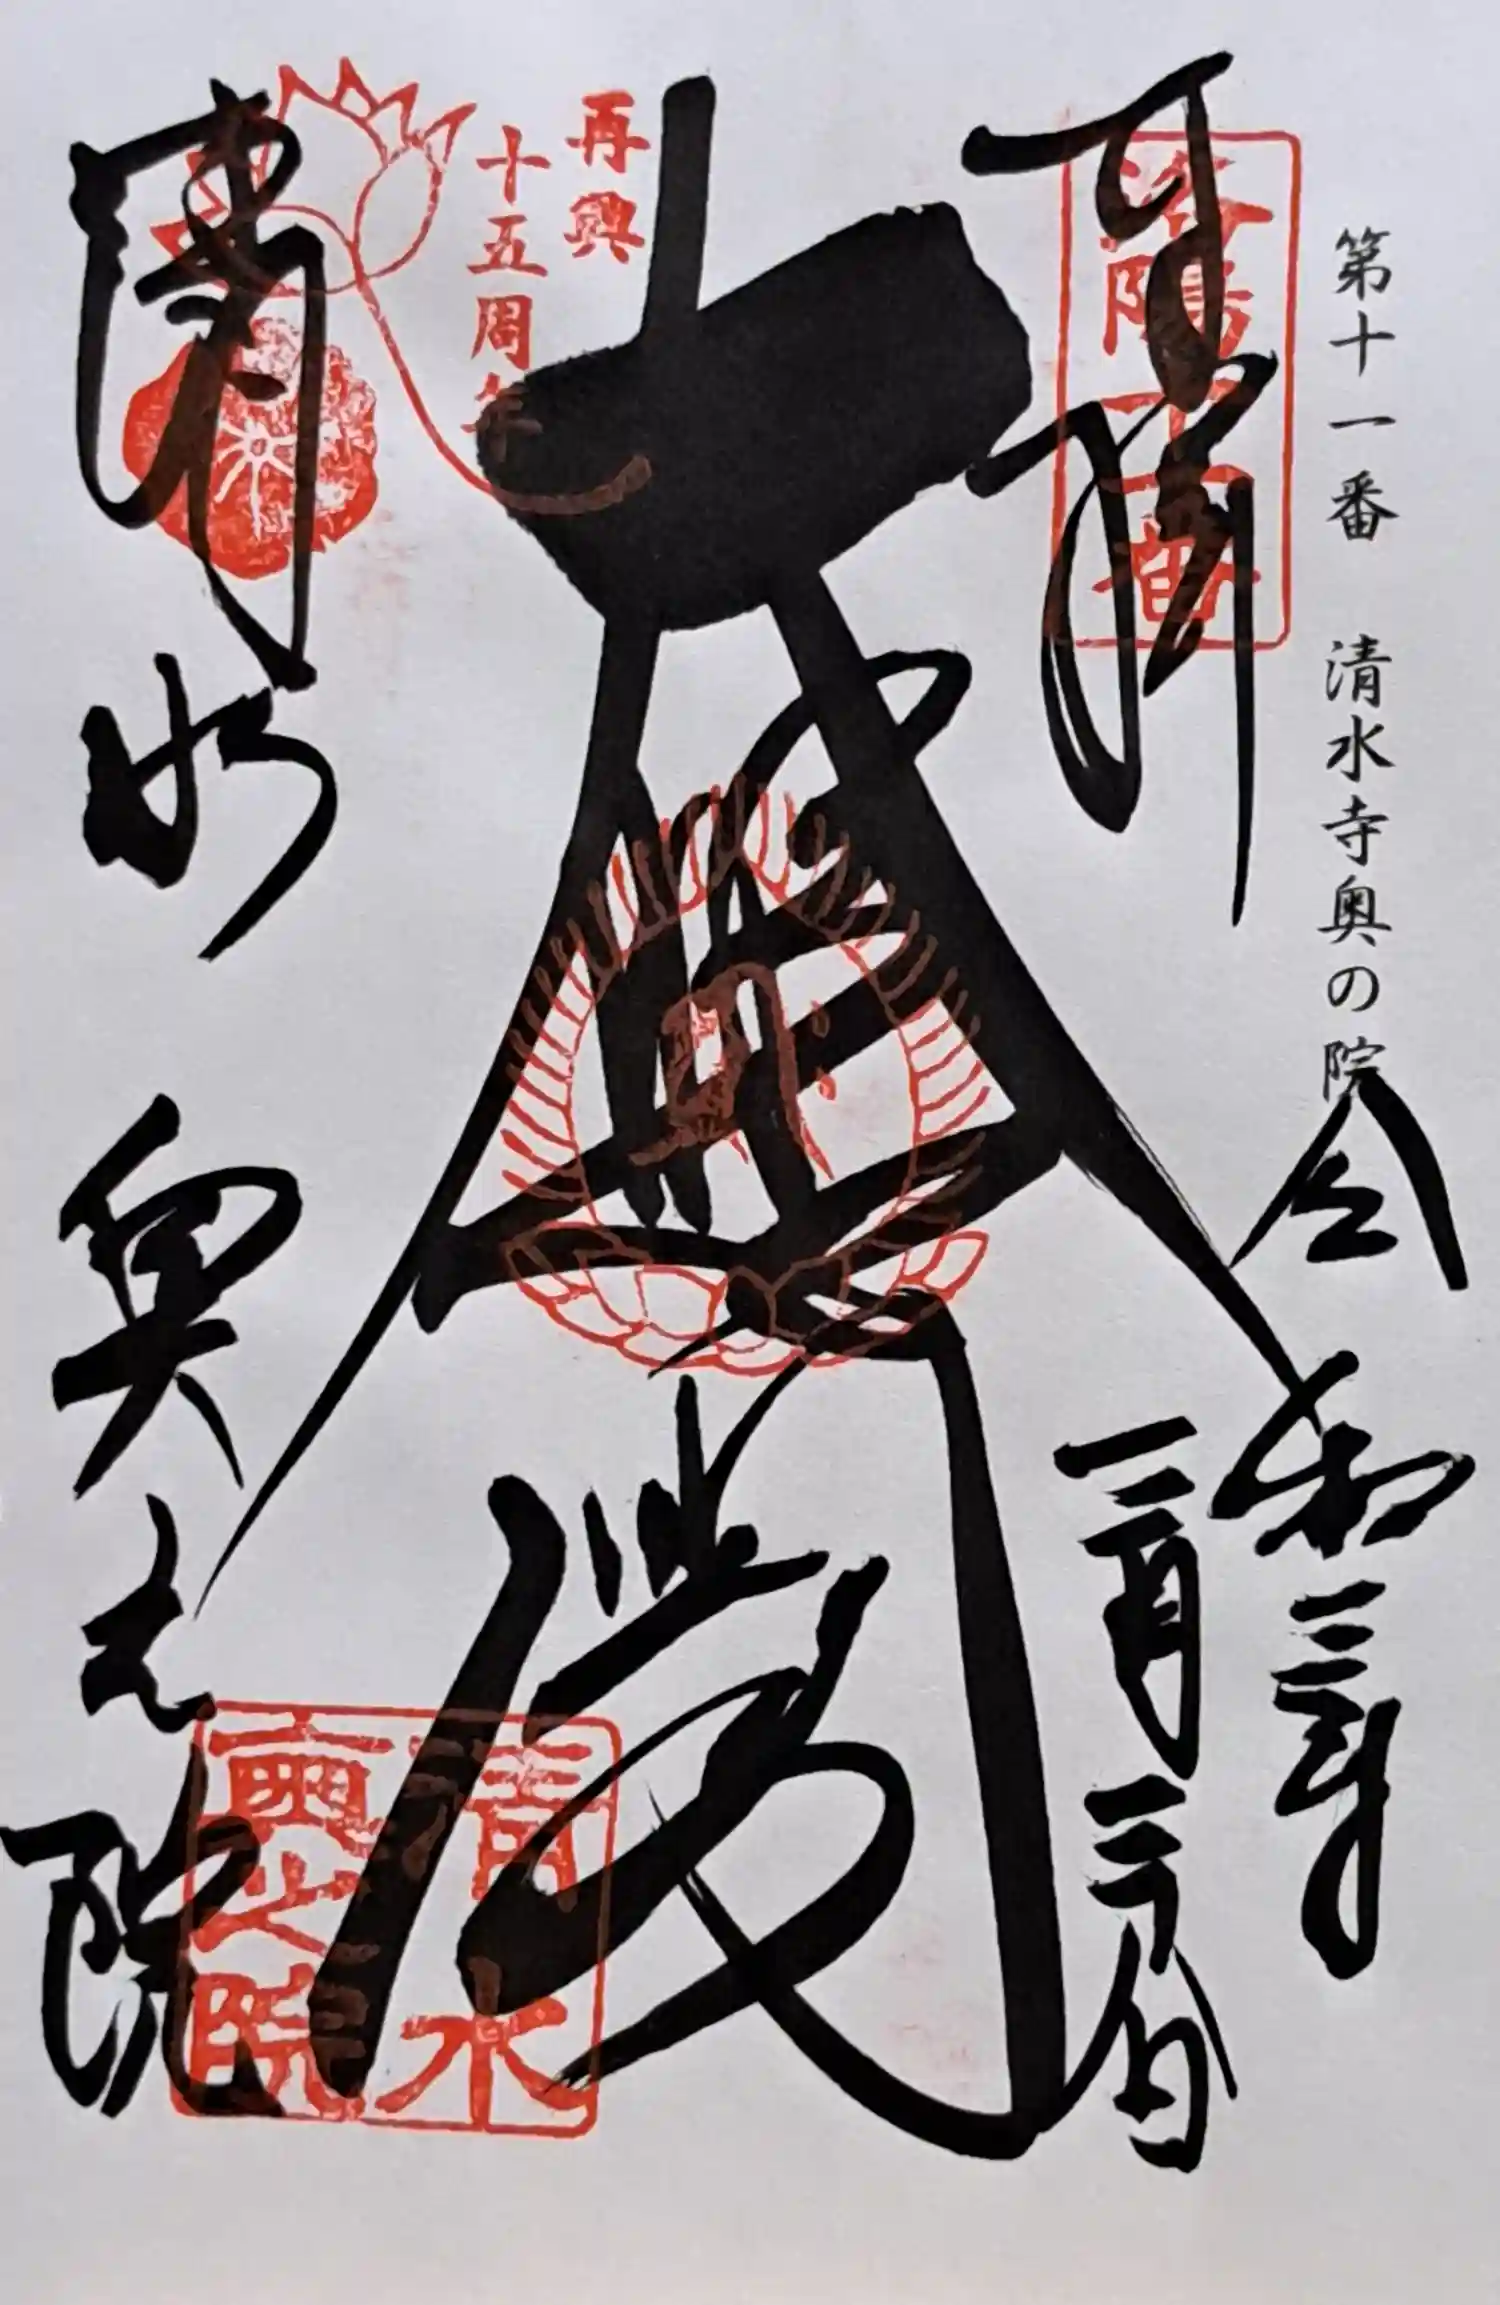 第十一番 清水寺奥の院
洛陽十一番
奉拝
令和
再興
十五周年
大悲閣
清水
奥之院
清水
奥之院